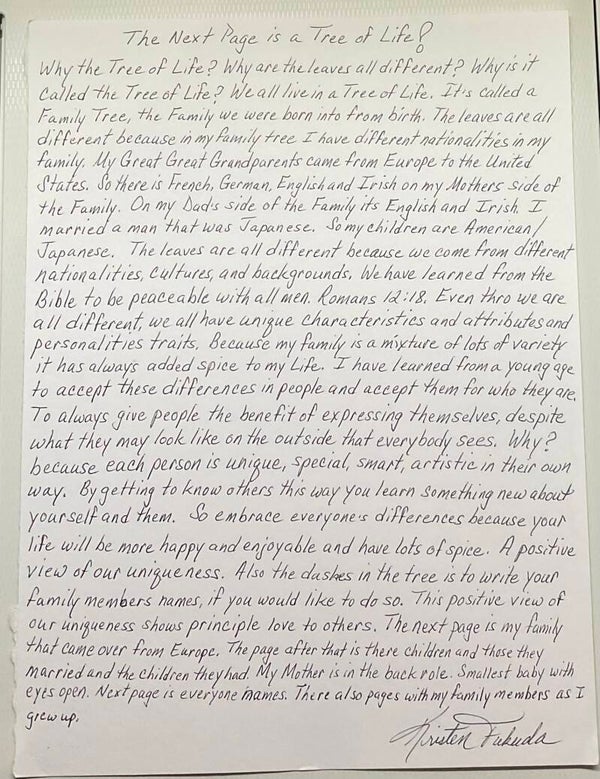 The Next Page is a Tree of Life!
Why the Tree of Life? Why are the leaves all different? Why is it
Called the Tree of Life? We all live in a Tree of Life. It's called a
Family Tree, the Family we were born into from birth. The leaves are all
different because in my family tree I have different nationalities in my
family. My Great Great Grandparents came from Europe to the United
States. So there is French, German, English and Irish on my Mothers side of
the Family. On my Dad's side of the Family its English and Irish. I
married a man that was Japanese. So my children are American/
Japanese. The leaves are all different because we come from different
nationalities, cultures, and backgrounds. We have learned from the
Bible to be peaceable with all men. Romans 12:18. Even thro we are
all different, we all have unique characteristics and attributes and
personalities traits. Because my family is a mixture of lots of variety
it has always added spice to my Life. I have learned from a young age
to accept these differences in people and accept them for who they are.
To always give people the benefit of expressing themselves, despite
what they may look like on the outside that everybody sees. Why?
because each person is unique, special, smart, artistic in their own
way. By getting to know others this way you learn something new about
yourself and them. So embrace everyone's differences because your
life will be more happy and enjoyable and have lots of spice. A positive
view of our uniqueness. Also the dashes in the tree is to write your
family members names, if you would like to do so. This positive view of
our uniqueness shows principle love to others. The next page is my family
that came over from Europe. The page after that is there children and those they
married and the children they had. My Mother is in the back role. Smallest baby with
eyes open. Next page is everyone names. There also pages with my family members as I
grew up.
Kristen Fukuda